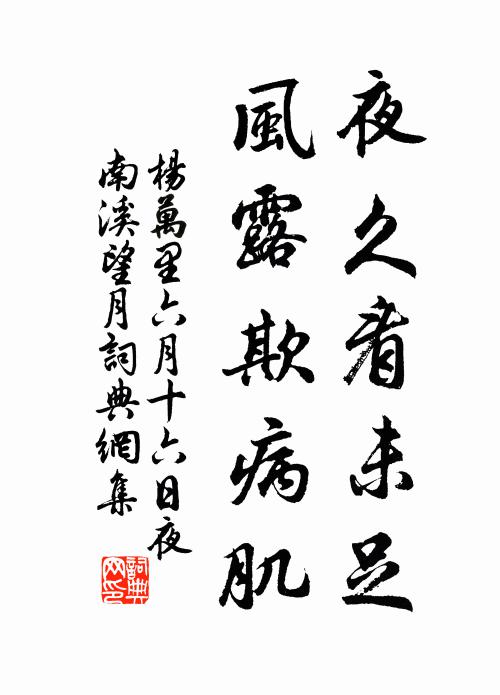 夜久看未足
風露欺病肌
楊萬里六月十六日夜
南溪望月詞典網集
詞典
网印